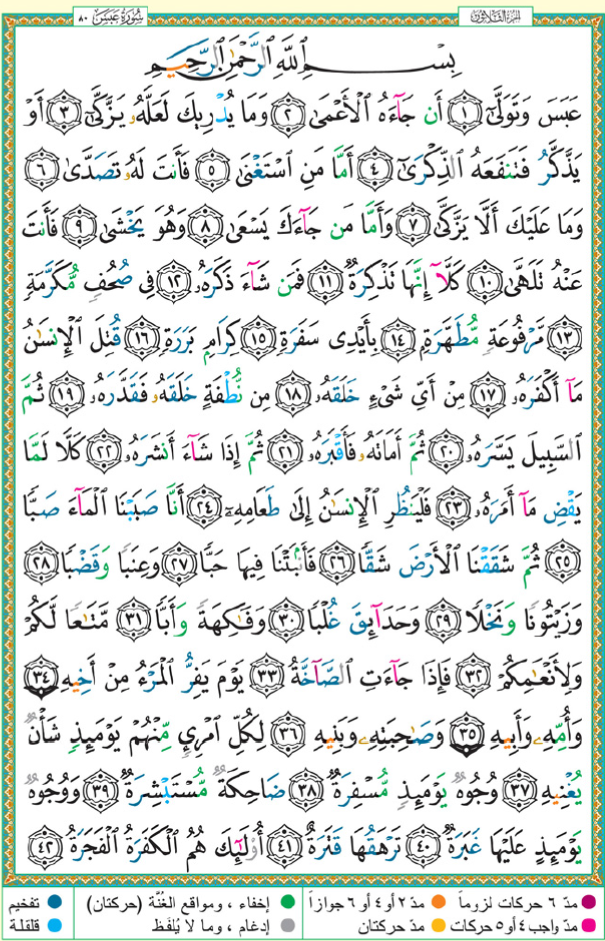 سُورَةُ عَبَسَ ٨٠
الجزء الثلاثون
بِسْمِ ٱللَّهِ ٱلرَّحْمَٰنِ ٱلرَّحِيمِ
عَبَسَ وَتَوَلَّىٰٓ ١ أَن جَآءَهُ ٱلْأَعْمَىٰ ٢ وَمَا يُدْرِيكَ لَعَلَّهُۥ يَزَّكَّىٰٓ ٣ أَوْ
يَذَّكَّرُ فَتَنفَعَهُ ٱلذِّكْرَىٰٓ ٤ أَمَّا مَنِ ٱسْتَغْنَىٰ ٥ فَأَنتَ لَهُۥ تَصَدَّىٰ ٦
وَمَا عَلَيْكَ أَلَّا يَزَّكَّىٰ ٧ وَأَمَّا مَن جَآءَكَ يَسْعَىٰ ٨ وَهُوَ يَخْشَىٰ ٩ فَأَنتَ
عَنْهُ تَلَهَّىٰ ١٠ كَلَّآ إِنَّهَا تَذْكِرَةٌ ١١ فَمَن شَآءَ ذَكَرَهُۥ ١٢ فِى صُحُفٍ مُّكَرَّمَةٍ
١٣ مَّرْفُوعَةٍ مُّطَهَّرَةٍۭ ١٤ بِأَيْدِى سَفَرَةٍ ١٥ كِرَامٍۭ بَرَرَةٍ ١٦ قُتِلَ ٱلْإِنسَٰنُ
مَآ أَكْفَرَهُۥ ١٧ مِنْ أَىِّ شَىْءٍ خَلَقَهُۥ ١٨ مِن نُّطْفَةٍ خَلَقَهُۥ فَقَدَّرَهُۥ ١٩ ثُمَّ
ٱلسَّبِيلَ يَسَّرَهُۥ ٢٠ ثُمَّ أَمَاتَهُۥ فَأَقْبَرَهُۥ ٢١ ثُمَّ إِذَا شَآءَ أَنشَرَهُۥ ٢٢ كَلَّا لَمَّا
يَقْضِ مَآ أَمَرَهُۥ ٢٣ فَلْيَنظُرِ ٱلْإِنسَٰنُ إِلَىٰ طَعَامِهِۦٓ ٢٤ أَنَّا صَبَبْنَا ٱلْمَآءَ صَبًّا
٢٥ ثُمَّ شَقَقْنَا ٱلْأَرْضَ شَقًّا ٢٦ فَأَنۢبَتْنَا فِيهَا حَبًّا ٢٧ وَعِنَبًا وَقَضْبًا ٢٨
وَزَيْتُونًا وَنَخْلًا ٢٩ وَحَدَآئِقَ غُلْبًا ٣٠ وَفَٰكِهَةً وَأَبًّا ٣١ مَّتَٰعًا لَّكُمْ
وَلِأَنْعَٰمِكُمْ ٣٢ فَإِذَا جَآءَتِ ٱلصَّآخَّةُ ٣٣ يَوْمَ يَفِرُّ ٱلْمَرْءُ مِنْ أَخِيهِ ٣٤
وَأُمِّهِۦ وَأَبِيهِ ٣٥ وَصَٰحِبَتِهِۦ وَبَنِيهِ ٣٦ لِكُلِّ ٱمْرِئٍ مِّنْهُمْ يَوْمَئِذٍ شَأْنٌ
يُغْنِيهِ ٣٧ وُجُوهٌ يَوْمَئِذٍ مُّسْفِرَةٌ ٣٨ ضَاحِكَةٌ مُّسْتَبْشِرَةٌ ٣٩ وَوُجُوهٌ
يَوْمَئِذٍ عَلَيْهَا غَبَرَةٌ ٤٠ تَرْهَقُهَا قَتَرَةٌ ٤١ أُو۟لَٰٓئِكَ هُمُ ٱلْكَفَرَةُ ٱلْفَجَرَةُ ٤٢
مدّ ٦ حركات لزوماً مدّ ٢ أو ٤ أو ٦ جوازاً إخفاء ، ومواقع الغُنَّة (حركتان) تفخيم
مدّ واجب ٤ أو ٥ حركات مدّ حركتان إدغام ، وما لا يُلفَظ قلقلة